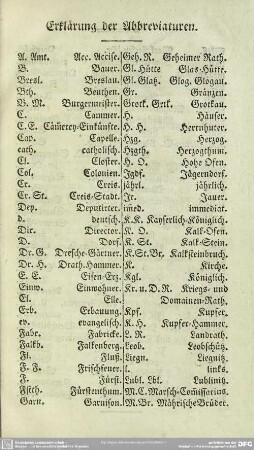 Erklärung der Abbreviaturen.
A. Amt. Acc. Accise.
B. Bauer.
Bresl. Breslau.
Bth. Beuthen.
B. M. Burgermeister.
C. Cammer.
C. E. Cämerey-Einkünfte.
Cap. Capelle.
cath. catholisch.
Cl. Closter.
Col. Colonien.
Cr. Creis.
Cr. St. Creis-Stadt.
Dep. Deputirter.
d. deutsch.
Dir. Director.
D. Dorf.
Dr. G. Dresche-Gärtner.
Dr. H. Drath-Hammer.
E. E. Eisen-Erz.
Einw. Einwohner.
El. Elle.
Erb. Erbauung.
ev. evangelisch.
Fabr. Fabricke.
Falkb. Falkenberg.
Fl. Fluß.
F. F. Frischfeuer.
F. Fürst.
Fsth. Fürstenthum.
Garn. Garnison.
Geh. R. Geheimer Rath.
Gl. Hütte Glas-Hütte.
Gl. Glatz. Glog. Glogau.
Gr. Gränzen.
Grotk. Grtk. Grotkau.
H. Häuser.
H. H. Herrnhuter.
Hzg. Herzog.
Hzgth. Herzogthum.
H. O. Hohe Ofen.
Jgdf. Jägerndorf.
jährl. jährlich.
Jr. Jauer.
imed. immediat.
K. K. Kayserlich-Königlich.
K. O. Kalk-Ofen.
K. St. Kalk-Stein.
K. St. Br. Kalksteinbruch.
K. Kirche.
Kgl. Königlich.
Kr. u. D. R. Kriegs- und
Domainen-Rath.
Kpf. Kupfer.
K. H. Kupfer-Hammer.
L. R. Landrath.
Leob. Leobschütz.
Liegn. Liegnitz.
l. links.
Lubl. Lbl. Lublinitz.
M. C. Marsch-Comissarius.
M. Br. Mährische Brüder.